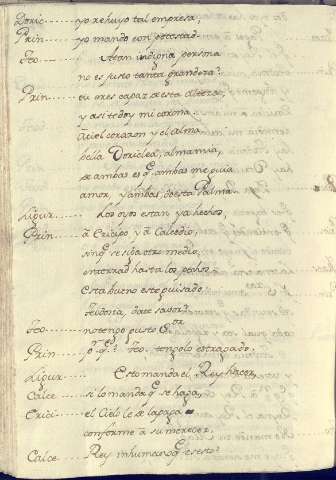 Doric--- yo rehuyo tal empresa,
Prin--- yo mando con potestad.
Teo--- Atan indigna persona
no es justo tanta grandeza?
Prin--- tu eres capaz desta Alteza,
y asi te doy mi corona.
el corazon y el alma
bella Doriclea, alma mia,
de ambas es q ambas me guia
amor, y ambas desta Palma.
Ligur--- Los ojos estan ya hechos,
Prin--- á Crisipo y á Calcedio,
sin q se siba otro medio,
enterrad hasta los pechos
Esta bueno este guisado
Teo--- no tengo gusto Sor
Prin--- p. q.? Teo. tengolo estragado.
Ligur--- Esto manda el Rey hacer,
Calce--- si lo manda q se haga,
Crici--- el Cielo le de la paga
conforme a su merecer.
Calce--- Rey inhumano q es esto?